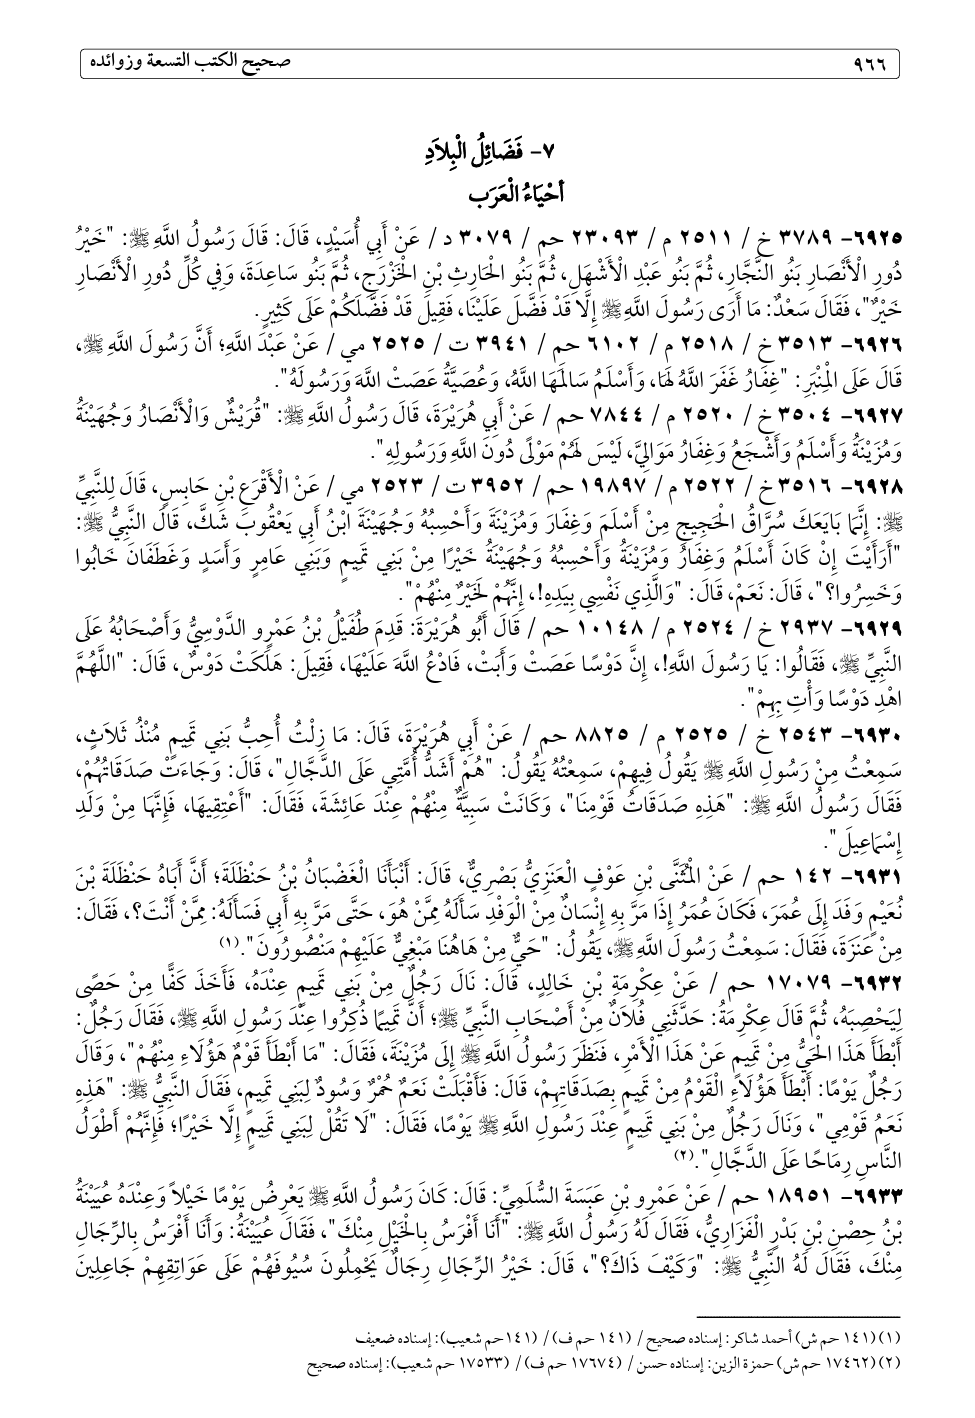 ٩٦٦
صحيح الكتب التسعة وزوائده
٧- فَضَائِلُ الْبِلاَدِ
أَحْيَاءُ الْعَرَبِ
٦٩٢٥- ٣٧٨٩ خ / ٢٥١١ م / ٢٣٠٩٣ حم / ٣٠٧٩ د / عَنْ أَبِي أُسَيْدٍ، قَالَ: قَالَ رَسُولُ اللَّهِ ﷺ: "خَيْرُ
دُورِ الْأَنْصَارِ بَنُو النَّجَّارِ، ثُمَّ بَنُو عَبْدِ الْأَشْهَلِ، ثُمَّ بَنُو الْحَارِثِ بْنِ الْخَزْرَجِ، ثُمَّ بَنُو سَاعِدَةَ، وَفِي كُلِّ دُورِ الْأَنْصَارِ
خَيْرٌ"، فَقَالَ سَعْدٌ: مَا أَرَى رَسُولَ اللَّهِ ﷺ إِلَّا قَدْ فَضَّلَ عَلَيْنَا، فَقِيلَ قَدْ فَضَّلَكُمْ عَلَى كَثِيرٍ.
٦٩٢٦- ٣٥١٣ خ / ٢٥١٨ م / ٦١٠٢ حم / ٣٩٤١ ت / ٢٥٢٥ مي / عَنْ عَبْدَ اللَّهِ؛ أَنَّ رَسُولَ اللَّهِ ﷺ،
قَالَ عَلَى الْمِنْبَرِ: "غِفَارُ غَفَرَ اللَّهُ لَهَا، وَأَسْلَمُ سَالَمَهَا اللَّهُ، وَعُصَيَّةُ عَصَتْ اللَّهَ وَرَسُولَهُ".
٦٩٢٧- ٣٥٠٤ خ / ٢٥٢٠ م / ٧٨٤٤ حم / عَنْ أَبِي هُرَيْرَةَ، قَالَ رَسُولُ اللَّهِ ﷺ: "قُرَيْشٌ وَالْأَنْصَارُ وَجُهَيْنَةُ
وَمُزَيْنَةُ وَأَسْلَمُ وَأَشْجَعُ وَغِفَارُ مَوَالِيَّ، لَيْسَ لَهُمْ مَوْلًى دُونَ اللَّهِ وَرَسُولِهِ".
٦٩٢٨- ٣٥١٦ خ / ٢٥٢٢ م / ١٩٨٩٧ حم / ٣٩٥٢ ت / ٢٥٢٣ مي / عَنْ الْأَقْرَعِ بْنِ حَابِسٍ، قَالَ لِلنَّبِيِّ
ﷺ: إِنَّمَا بَايَعَكَ سُرَّاقُ الْحَجِيجِ مِنْ أَسْلَمَ وَغِفَارَ وَمُزَيْنَةَ وَأَحْسِبُهُ وَجُهَيْنَةَ ابْنُ أَبِي يَعْقُوبَ شَكَّ، قَالَ النَّبِيُّ ﷺ:
"أَرَأَيْتَ إِنْ كَانَ أَسْلَمُ وَغِفَارُ وَمُزَيْنَةُ وَأَحْسِبُهُ وَجُهَيْنَةُ خَيْرًا مِنْ بَنِي تَمِيمٍ وَبَنِي عَامِرٍ وَأَسَدٍ وَغَطَفَانَ خَابُوا
وَخَسِرُوا؟"، قَالَ: نَعَمْ، قَالَ: "وَالَّذِي نَفْسِي بِيَدِهِ!، إِنَّهُمْ لَخَيْرٌ مِنْهُمْ".
٦٩٢٩- ٢٩٣٧ خ / ٢٥٢٤ م / ١٠١٤٨ حم / قَالَ أَبُو هُرَيْرَةَ: قَدِمَ طُفَيْلُ بْنُ عَمْرٍو الدَّوْسِيُّ وَأَصْحَابُهُ عَلَى
النَّبِيِّ ﷺ، فَقَالُوا: يَا رَسُولَ اللَّهِ!، إِنَّ دَوْسًا عَصَتْ وَأَبَتْ، فَادْعُ اللَّهَ عَلَيْهَا، فَقِيلَ: هَلَكَتْ دَوْسٌ، قَالَ: "اللَّهُمَّ
اهْدِ دَوْسًا وَأْتِ بِهِمْ".
٦٩٣٠- ٢٥٤٣ خ / ٢٥٢٥ م / ٨٨٢٥ حم / عَنْ أَبِي هُرَيْرَةَ، قَالَ: مَا زِلْتُ أُحِبُّ بَنِي تَمِيمٍ مُنْذُ ثَلاَثٍ،
سَمِعْتُ مِنْ رَسُولِ اللَّهِ ﷺ يَقُولُ فِيهِمْ، سَمِعْتُهُ يَقُولُ: "هُمْ أَشَدُّ أُمَّتِي عَلَى الدَّجَّالِ"، قَالَ: وَجَاءَتْ صَدَقَاتُهُمْ،
فَقَالَ رَسُولُ اللَّهِ ﷺ: "هَذِهِ صَدَقَاتُ قَوْمِنَا"، وَكَانَتْ سَبِيَّةٌ مِنْهُمْ عِنْدَ عَائِشَةَ، فَقَالَ: "أَعْتِقِيهَا، فَإِنَّهَا مِنْ وَلَدِ
إِسْمَاعِيلَ".
٦٩٣١- ١٤٢ حم / عَنْ الْمُثَنَّى بْنِ عَوْفٍ الْعَنَزِيُّ بَصْرِيٌّ، قَالَ: أَنْبَأَنَا الْغَضْبَانُ بْنُ حَنْظَلَةَ؛ أَنَّ أَبَاهُ حَنْظَلَةَ بْنَ
نُعَيْمٍ وَفَدَ إِلَى عُمَرَ، فَكَانَ عُمَرُ إِذَا مَرَّ بِهِ إِنْسَانٌ مِنْ الْوَفْدِ سَأَلَهُ مِمَّنْ هُوَ، حَتَّى مَرَّ بِهِ أَبِي فَسَأَلَهُ: مِمَّنْ أَنْتَ؟، فَقَالَ:
مِنْ عَنَزَةَ، فَقَالَ: سَمِعْتُ رَسُولَ اللَّهِ ﷺ، يَقُولُ: "حَيٌّ مِنْ هَاهُنَا مَبْغِيٌّ عَلَيْهِمْ مَنْصُورُونَ".(١)
٦٩٣٢- ١٧٠٧٩ حم / عَنْ عِكْرِمَةِ بْنِ خَالِدٍ، قَالَ: نَالَ رَجُلٌ مِنْ بَنِي تَمِيمٍ عِنْدَهُ، فَأَخَذَ كَفًّا مِنْ حَصًى
لِيَحْصِبَهُ، ثُمَّ قَالَ عِكْرِمَةُ: حَدَّثَنِي فُلاَنٌ مِنْ أَصْحَابِ النَّبِيِّ ﷺ؛ أَنَّ تَمِيمًا ذُكِرُوا عِنْدَ رَسُولِ اللَّهِ ﷺ، فَقَالَ رَجُلٌ:
أَبْطَأَ هَذَا الْحَيُّ مِنْ تَمِيمٍ عَنْ هَذَا الْأَمْرِ، فَنَظَرَ رَسُولُ اللَّهِ ﷺ إِلَى مُزَيْنَةَ، فَقَالَ: "مَا أَبْطَأَ قَوْمٌ هَؤُلاَءِ مِنْهُمْ"، وَقَالَ
رَجُلٌ يَوْمًا: أَبْطَأَ هَؤُلاَءِ الْقَوْمُ مِنْ تَمِيمٍ بِصَدَقَاتِهِمْ، قَالَ: فَأَقْبَلَتْ نَعَمٌ حُمْرٌ وَسُودٌ لِبَنِي تَمِيمٍ، فَقَالَ النَّبِيُّ ﷺ: "هَذِهِ
نَعَمُ قَوْمِي"، وَنَالَ رَجُلٌ مِنْ بَنِي تَمِيمٍ عِنْدَ رَسُولِ اللَّهِ ﷺ يَوْمًا، فَقَالَ: "لاَ تَقُلْ لِبَنِي تَمِيمٍ إِلَّا خَيْرًا؛ فَإِنَّهُمْ أَطْوَلُ
النَّاسِ رِمَاحًا عَلَى الدَّجَّالِ".(٢)
٦٩٣٣- ١٨٩٥١ حم / عَنْ عَمْرِو بْنِ عَبَسَةَ السُّلَمِيِّ: قَالَ: كَانَ رَسُولُ اللَّهِ ﷺ يَعْرِضُ يَوْمًا خَيْلاً وَعِنْدَهُ عُيَيْنَةُ
بْنُ حِصْنِ بْنِ بَدْرٍ الْفَزَارِيُّ، فَقَالَ لَهُ رَسُولُ اللَّهِ ﷺ: "أَنَا أَفْرَسُ بِالْخَيْلِ مِنْكَ"، فَقَالَ عُيَيْنَةُ: وَأَنَا أَفْرَسُ بِالرِّجَالِ
مِنْكَ، فَقَالَ لَهُ النَّبِيُّ ﷺ: "وَكَيْفَ ذَاكَ؟"، قَالَ: خَيْرُ الرِّجَالِ رِجَالٌ يَحْمِلُونَ سُيُوفَهُمْ عَلَى عَوَاتِقِهِمْ جَاعِلِينَ
(١)(١٤١ حم ش) أحمد شاكر: إسناده صحيح / (١٤١ حم ف) / (١٤١حم شعيب): إسناده ضعيف
(٢)(١٧٤٦٢ حم ش) حمزة الزين: إسناده حسن / (١٧٦٧٤ حم ف) / (١٧٥٣٣ حم شعيب): إسناده صحيح